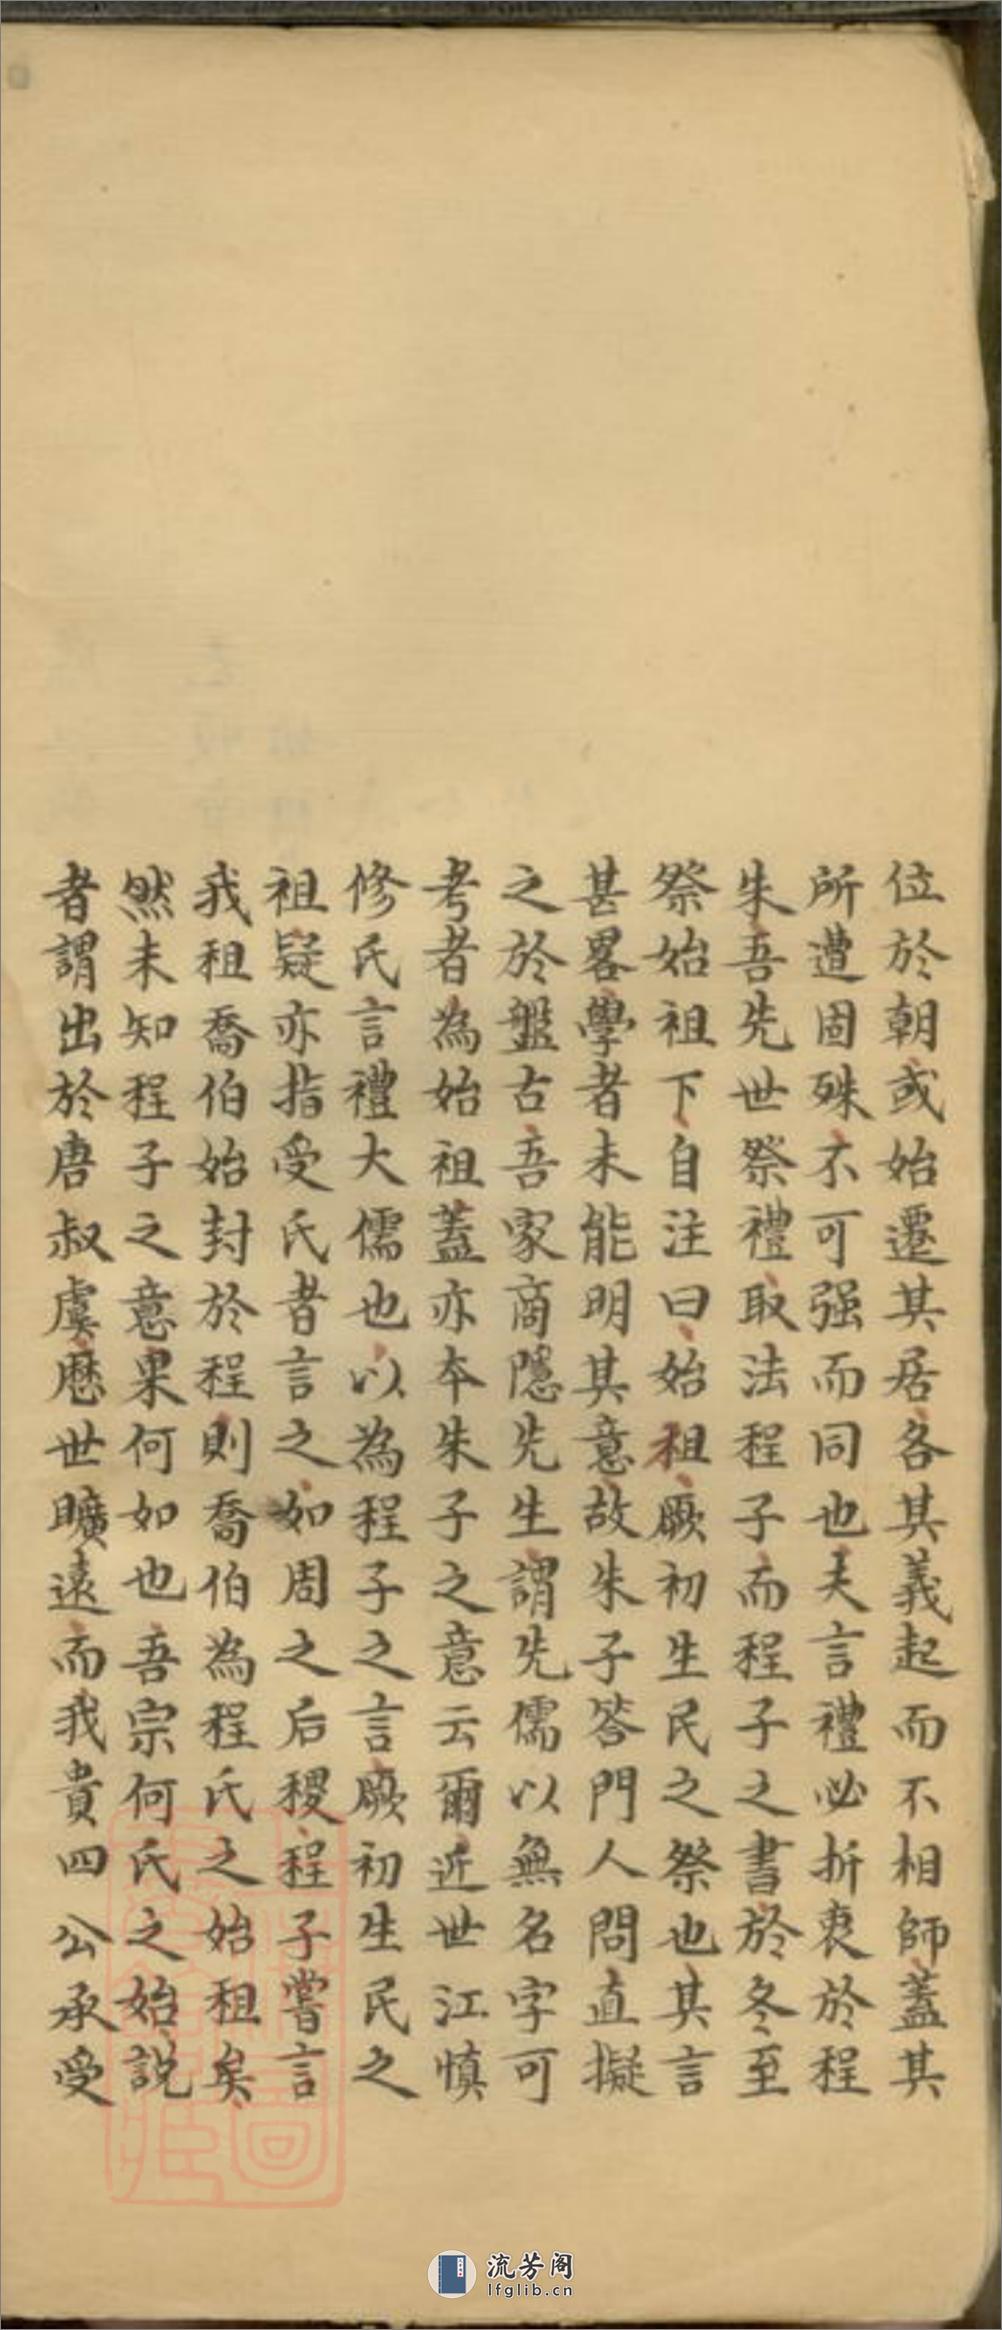 位於朝或始遷其居各其義起而不相師蓋其
所遭固殊不可强而同也夫言禮必折衷於程
朱吾先世祭禮取法程子而程子之書於冬至
祭始祖下自注曰始祖厥初生民之祭也其言
甚畧學者未能明其意故朱子答門人問直擬
之於盤古吾家商隱先生謂先儒以無名字可
考者為始祖蓋亦本朱子之意云爾近世江慎
修氏言禮大儒也以為程子之言厥初生民之
祖疑亦指受氏者言之如周之后稷程子嘗言
我祖喬伯始封於程則喬伯為程氏之始祖矣
然未知程子之意果何如也吾宗何氏之始說
者謂出於唐叔虞歷世曠遠而我貴四公承受
流芳阁
lfglib.cn